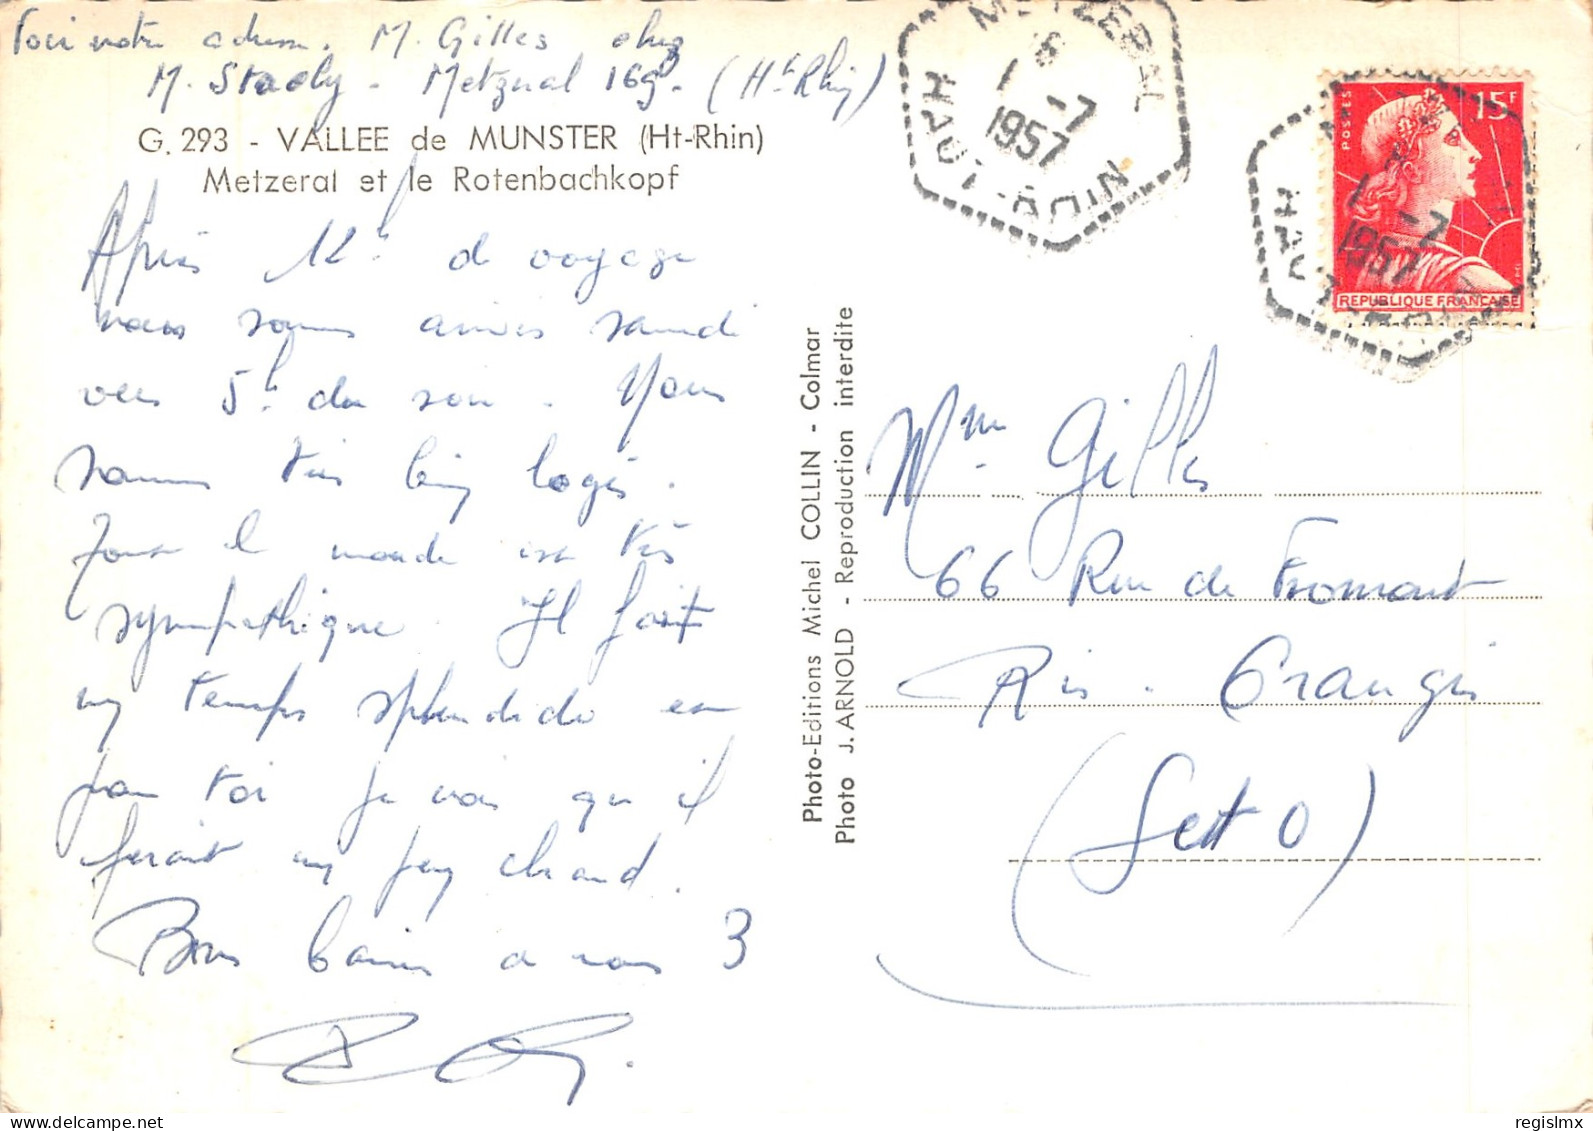 Voici notre adresse. M. Gilles chez
M. Stoely - Metzeral 169 - (Ht Rhin)
G. 293 - VALLEE de MUNSTER (Ht-Rhin)
Metzeral et le Rotenbachkopf
Après 12h de voyage
nous sommes arrivés samedi
vers 5h du soir. Nous
sommes très bien logés.
Tout le monde est très
sympathique. Il fait
un temps splendide et
pour toi je crois qu'il
ferait un peu chaud.
Bons baisers a vous 3
Photo-Editions Michel COLLIN - Colmar
Photo J. ARNOLD - Reproduction interdite
METZERAL
1 -7
1957
HAUT-RHIN
POSTES
15F
REPUBLIQUE FRANÇAISE
1 -7
1957
Mme Gilles
66 Rue de Fromont
Ris. Orangis
(Set O)
regislmx